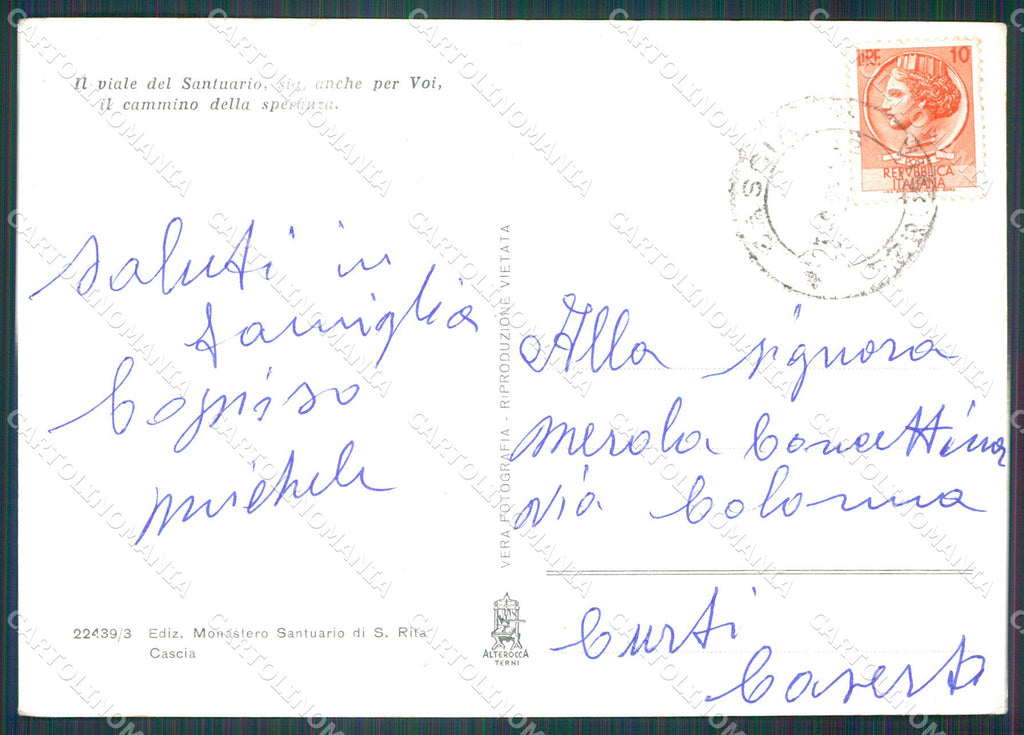 Il viale del Santuario, sia, anche per Voi,
il cammino della speranza.
LIRE 10
POSTE
REPVBBLICA
ITALIANA
CASCIA
Saluti in
famiglia
Michele
VERA FOTOGRAFIA - RIPRODUZIONE VIETATA
Alla signora
Merola Concettina
via Colonna
Curti
Caserta
22439/3 Ediz. Monastero Santuario di S. Rita
Cascia
ALTEROCCA
TERNI
CARTOLINOMANIA